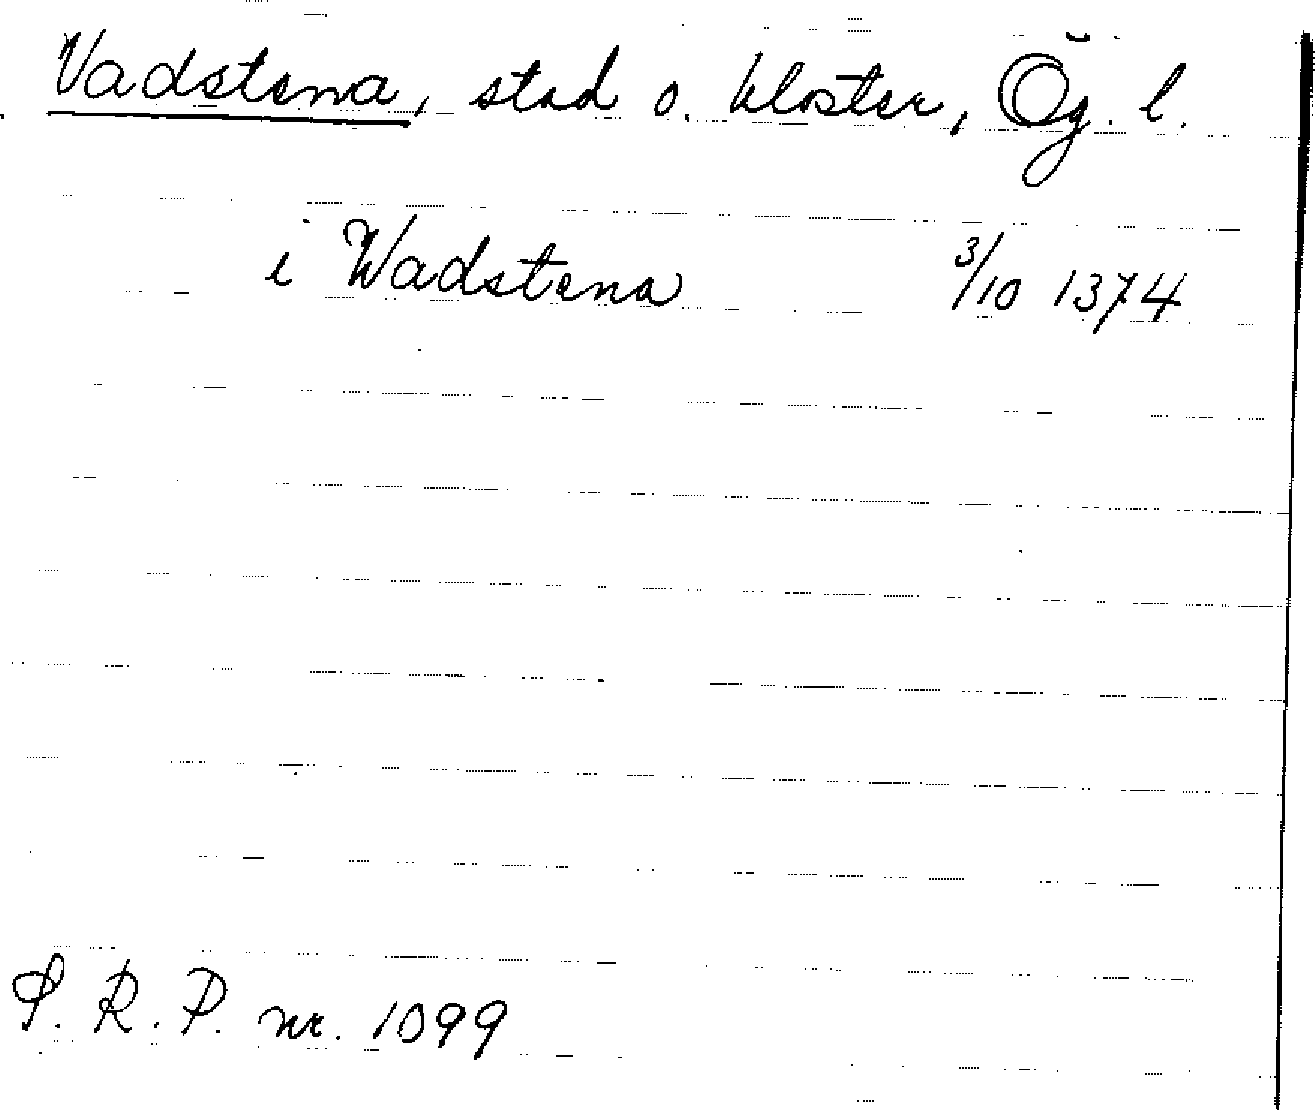 Vadstena, stad o. kloster, Ög. l.
i Wadstena 3/10 1374
S. R. P. nr. 1099